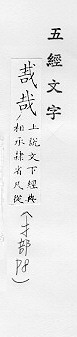 五經文字
㦲哉上說文下經典
相承隸省凡從
(才部
P8